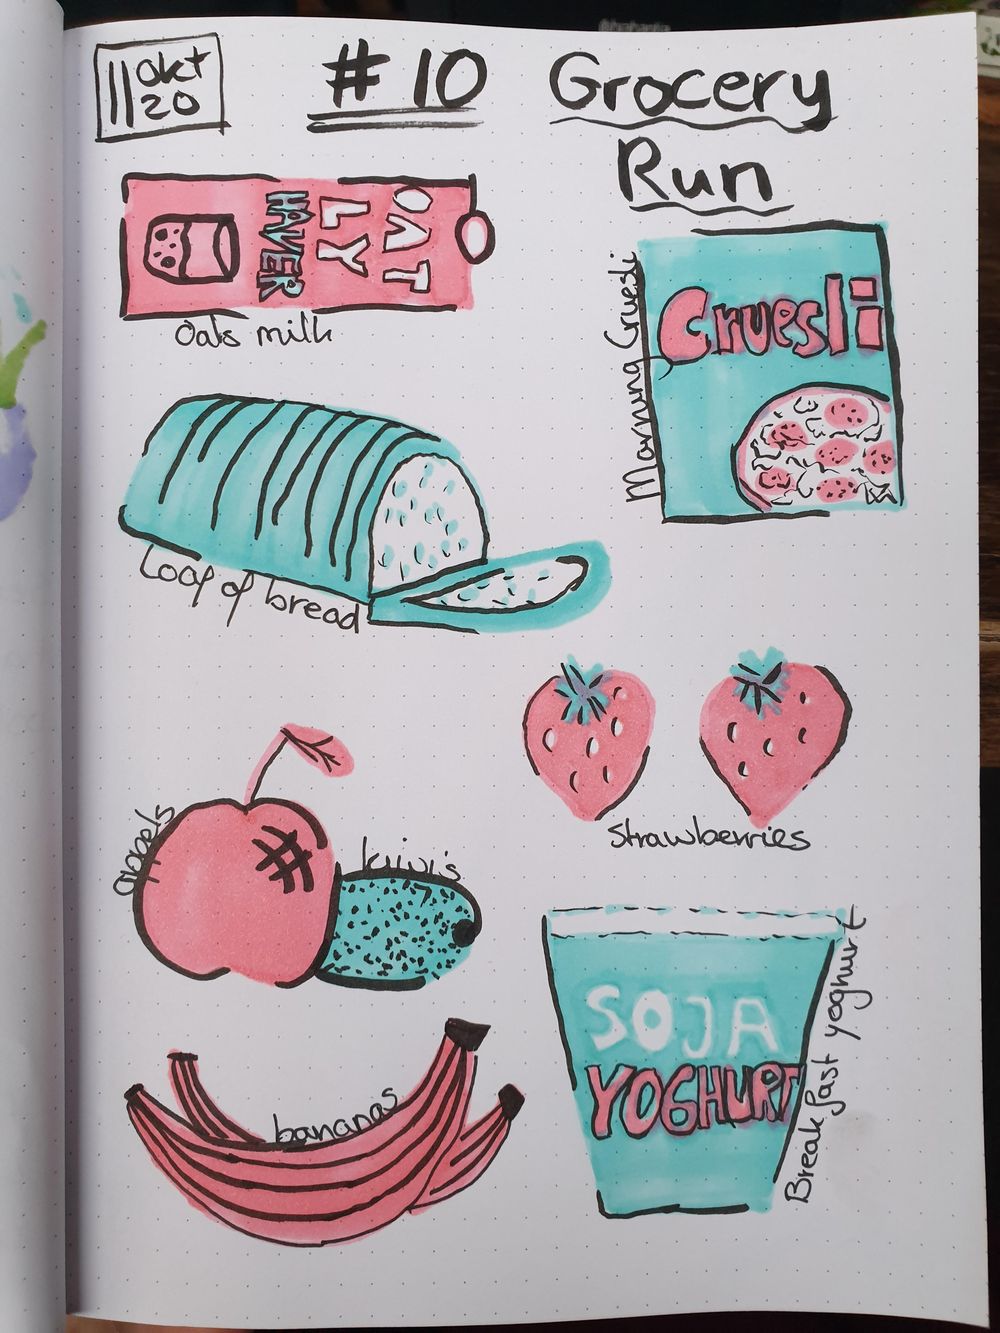 11 okt
20
# 10 Grocery
Run
OAT
LY
HAVER
Oats milk
Cruesli
Morning Cruesli
Loaf of bread
Strawberries
appels
kiwi's
bananas
SOJA
YOGHURT
Breakfast yoghurt